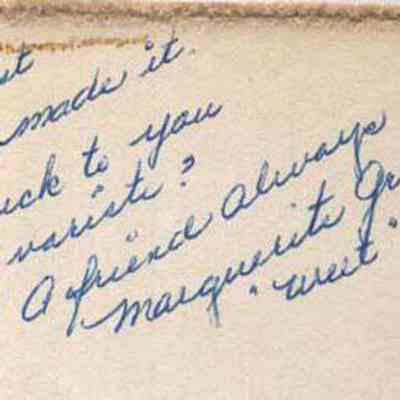 made it.
uck to you
variste?
A friend always
Marguerite Gr
"Weet"